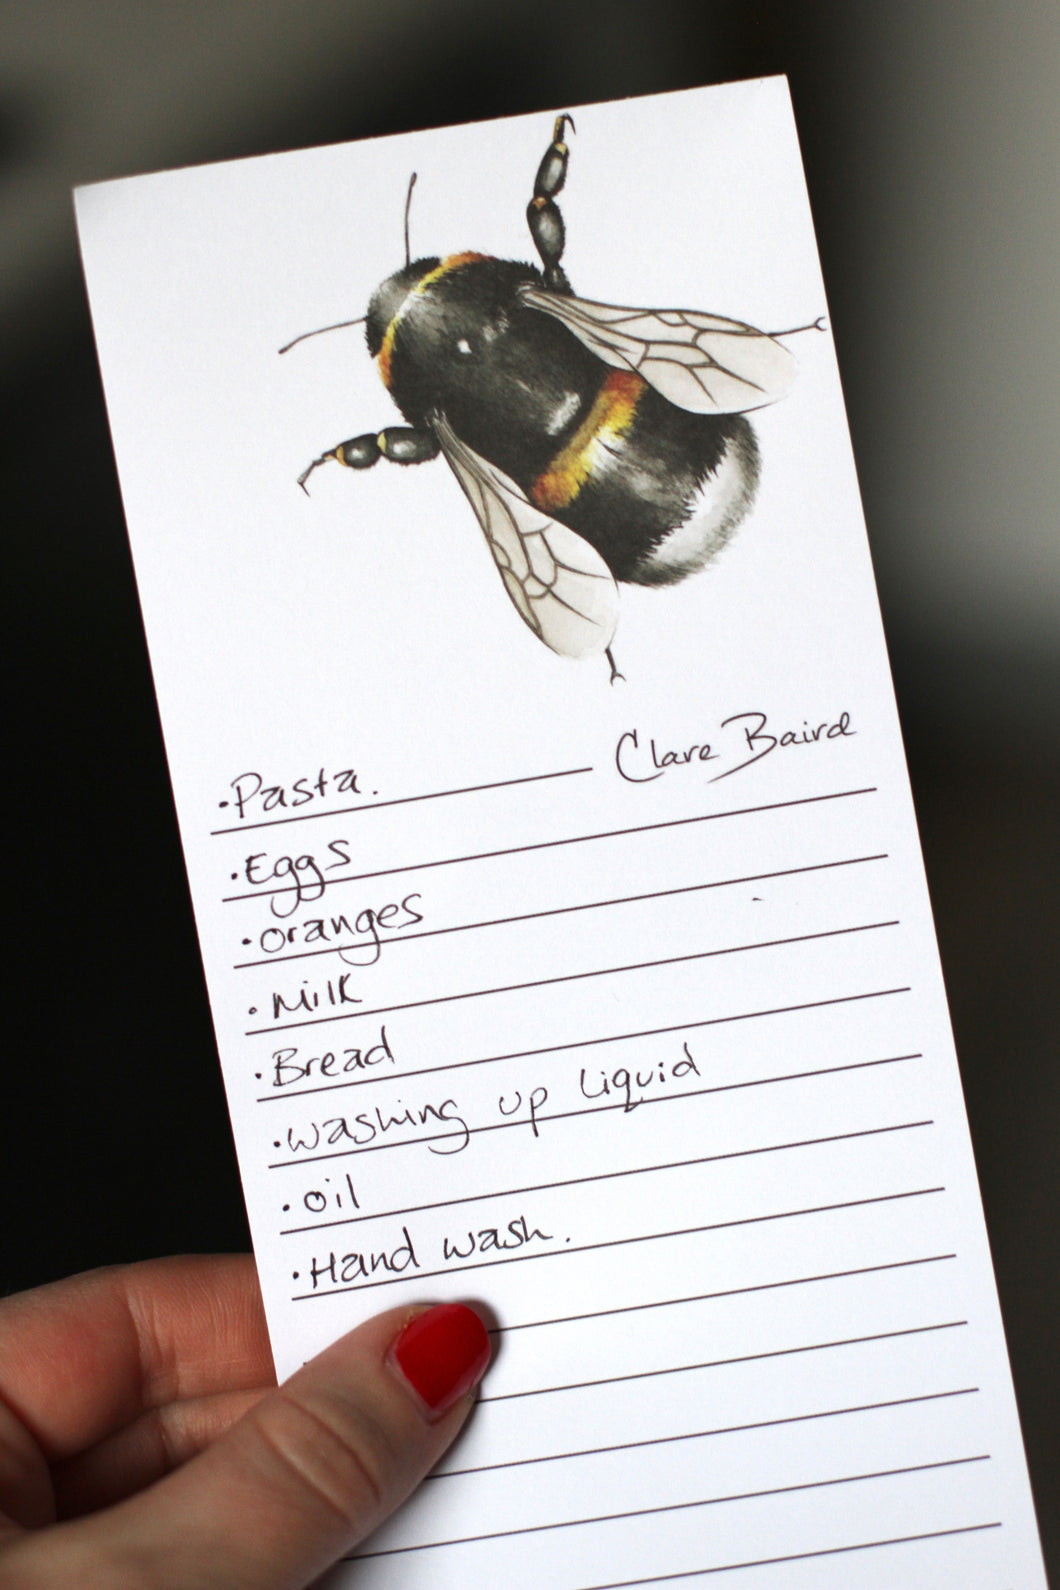 Clare Baird
·Pasta.
·Eggs
·oranges
·Milk
·Bread
·washing up liquid
·oil
·Hand wash.